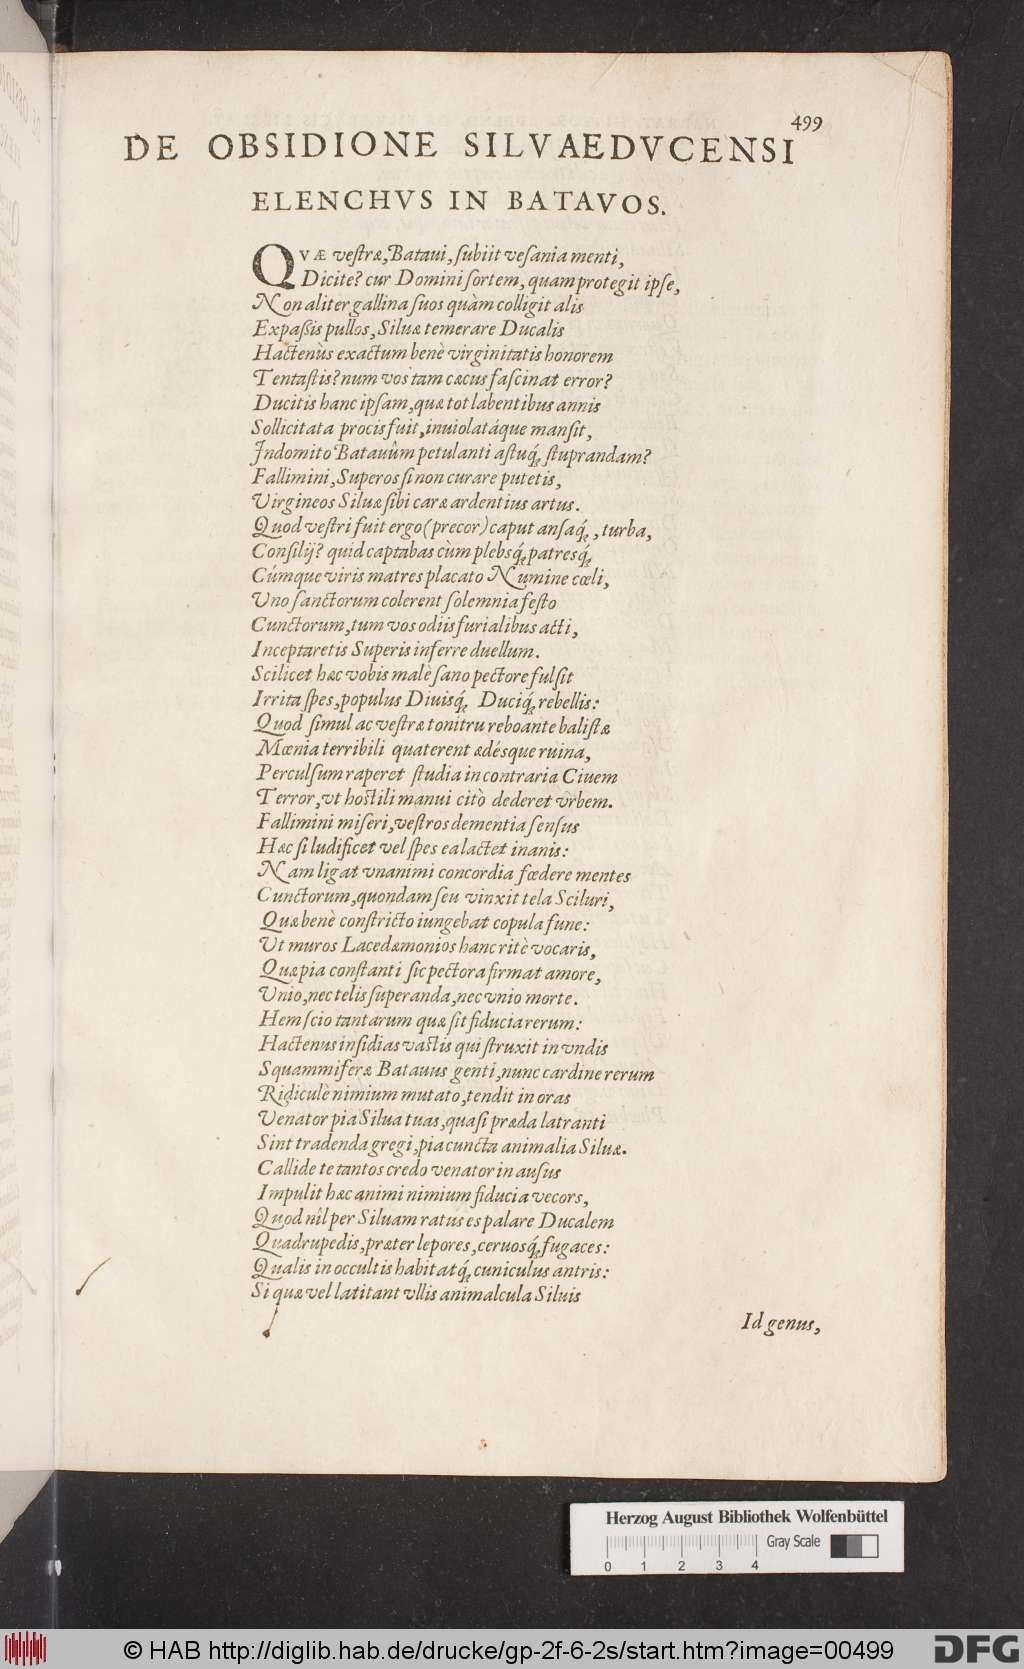 499
DE OBSIDIONE SILVAEDVCENSI
ELENCHVS IN BATAVOS.
QVÆ vestræ, Bataui, subiit vesania menti,
Dicite? cur Domini sortem, quam protegit ipse,
Non aliter gallina suos quàm colligit alis
Expaßis pullos, Siluæ temerare Ducalis
Hactenùs exactum benè virginitatis honorem
Tentastis? num vos tam cæcus fascinat error?
Ducitis hanc ipsam, quæ tot labentibus annis
Sollicitata procis fuit, inuiolatáque mansit,
Indomito Batauûm petulanti astuq́; stuprandam?
Fallimini, Superos si non curare putetis,
Virgineos Siluæ sibi caræ ardentius artus.
Quod vestri fuit ergo (precor) caput ansaq́;, turba,
Consilij? quid captabas cùm plebsq́; patresq́;
Cúmque viris matres placato Numine cœli,
Vno sanctorum colerent solemnia festo
Cunctorum, tum vos odiis furialibus acti,
Inceptaretis Superis inferre duellum.
Scilicet hæc vobis malè sano pectore fulsit
Irrita spes, populus Diuisq́; Duciq́; rebellis:
Quod simul ac vestræ tonitru reboante balistæ
Mœnia terribili quaterent ædésque ruina,
Perculsum raperet studia in contraria Ciuem
Terror, vt hostili manui citò dederet vrbem.
Fallimini miseri, vestros dementia sensus
Hæc si ludificet vel spes ea lactet inanis:
Nam ligat vnanimi concordia fœdere mentes
Cunctorum, quondam seu vinxit tela Sciluri,
Quæ benè constricto iungebat copula fune:
Vt muros Lacedæmonios hanc ritè vocaris,
Quæ pia constanti sic pectora firmat amore,
Vnio, nec telis superanda, nec vnio morte.
Hem scio tantarum quæ sit fiducia rerum:
Hactenus insidias vastis qui struxit in vndis
Squammiferæ Batauus genti, nunc cardine rerum
Ridiculè nimium mutato, tendit in oras
Venator pia Silua tuas, quasi præda latranti
Sint tradenda gregi, pia cuncta animalia Siluæ.
Callide te tantos credo venator in ausus
Impulit hæc animi nimium fiducia vecors,
Quod nîl per Siluam ratus es palare Ducalem
Quadrupedis, præter lepores, ceruosq́; fugaces:
Qualis in occultis habitatq́; cuniculus antris:
Si quæ vel latitant vllis animalcula Siluis
Id genus,
Herzog August Bibliothek Wolfenbüttel
Gray Scale
0 1 2 3 4
© HAB http://diglib.hab.de/drucke/gp-2f-6-2s/start.htm?image=00499
DFG